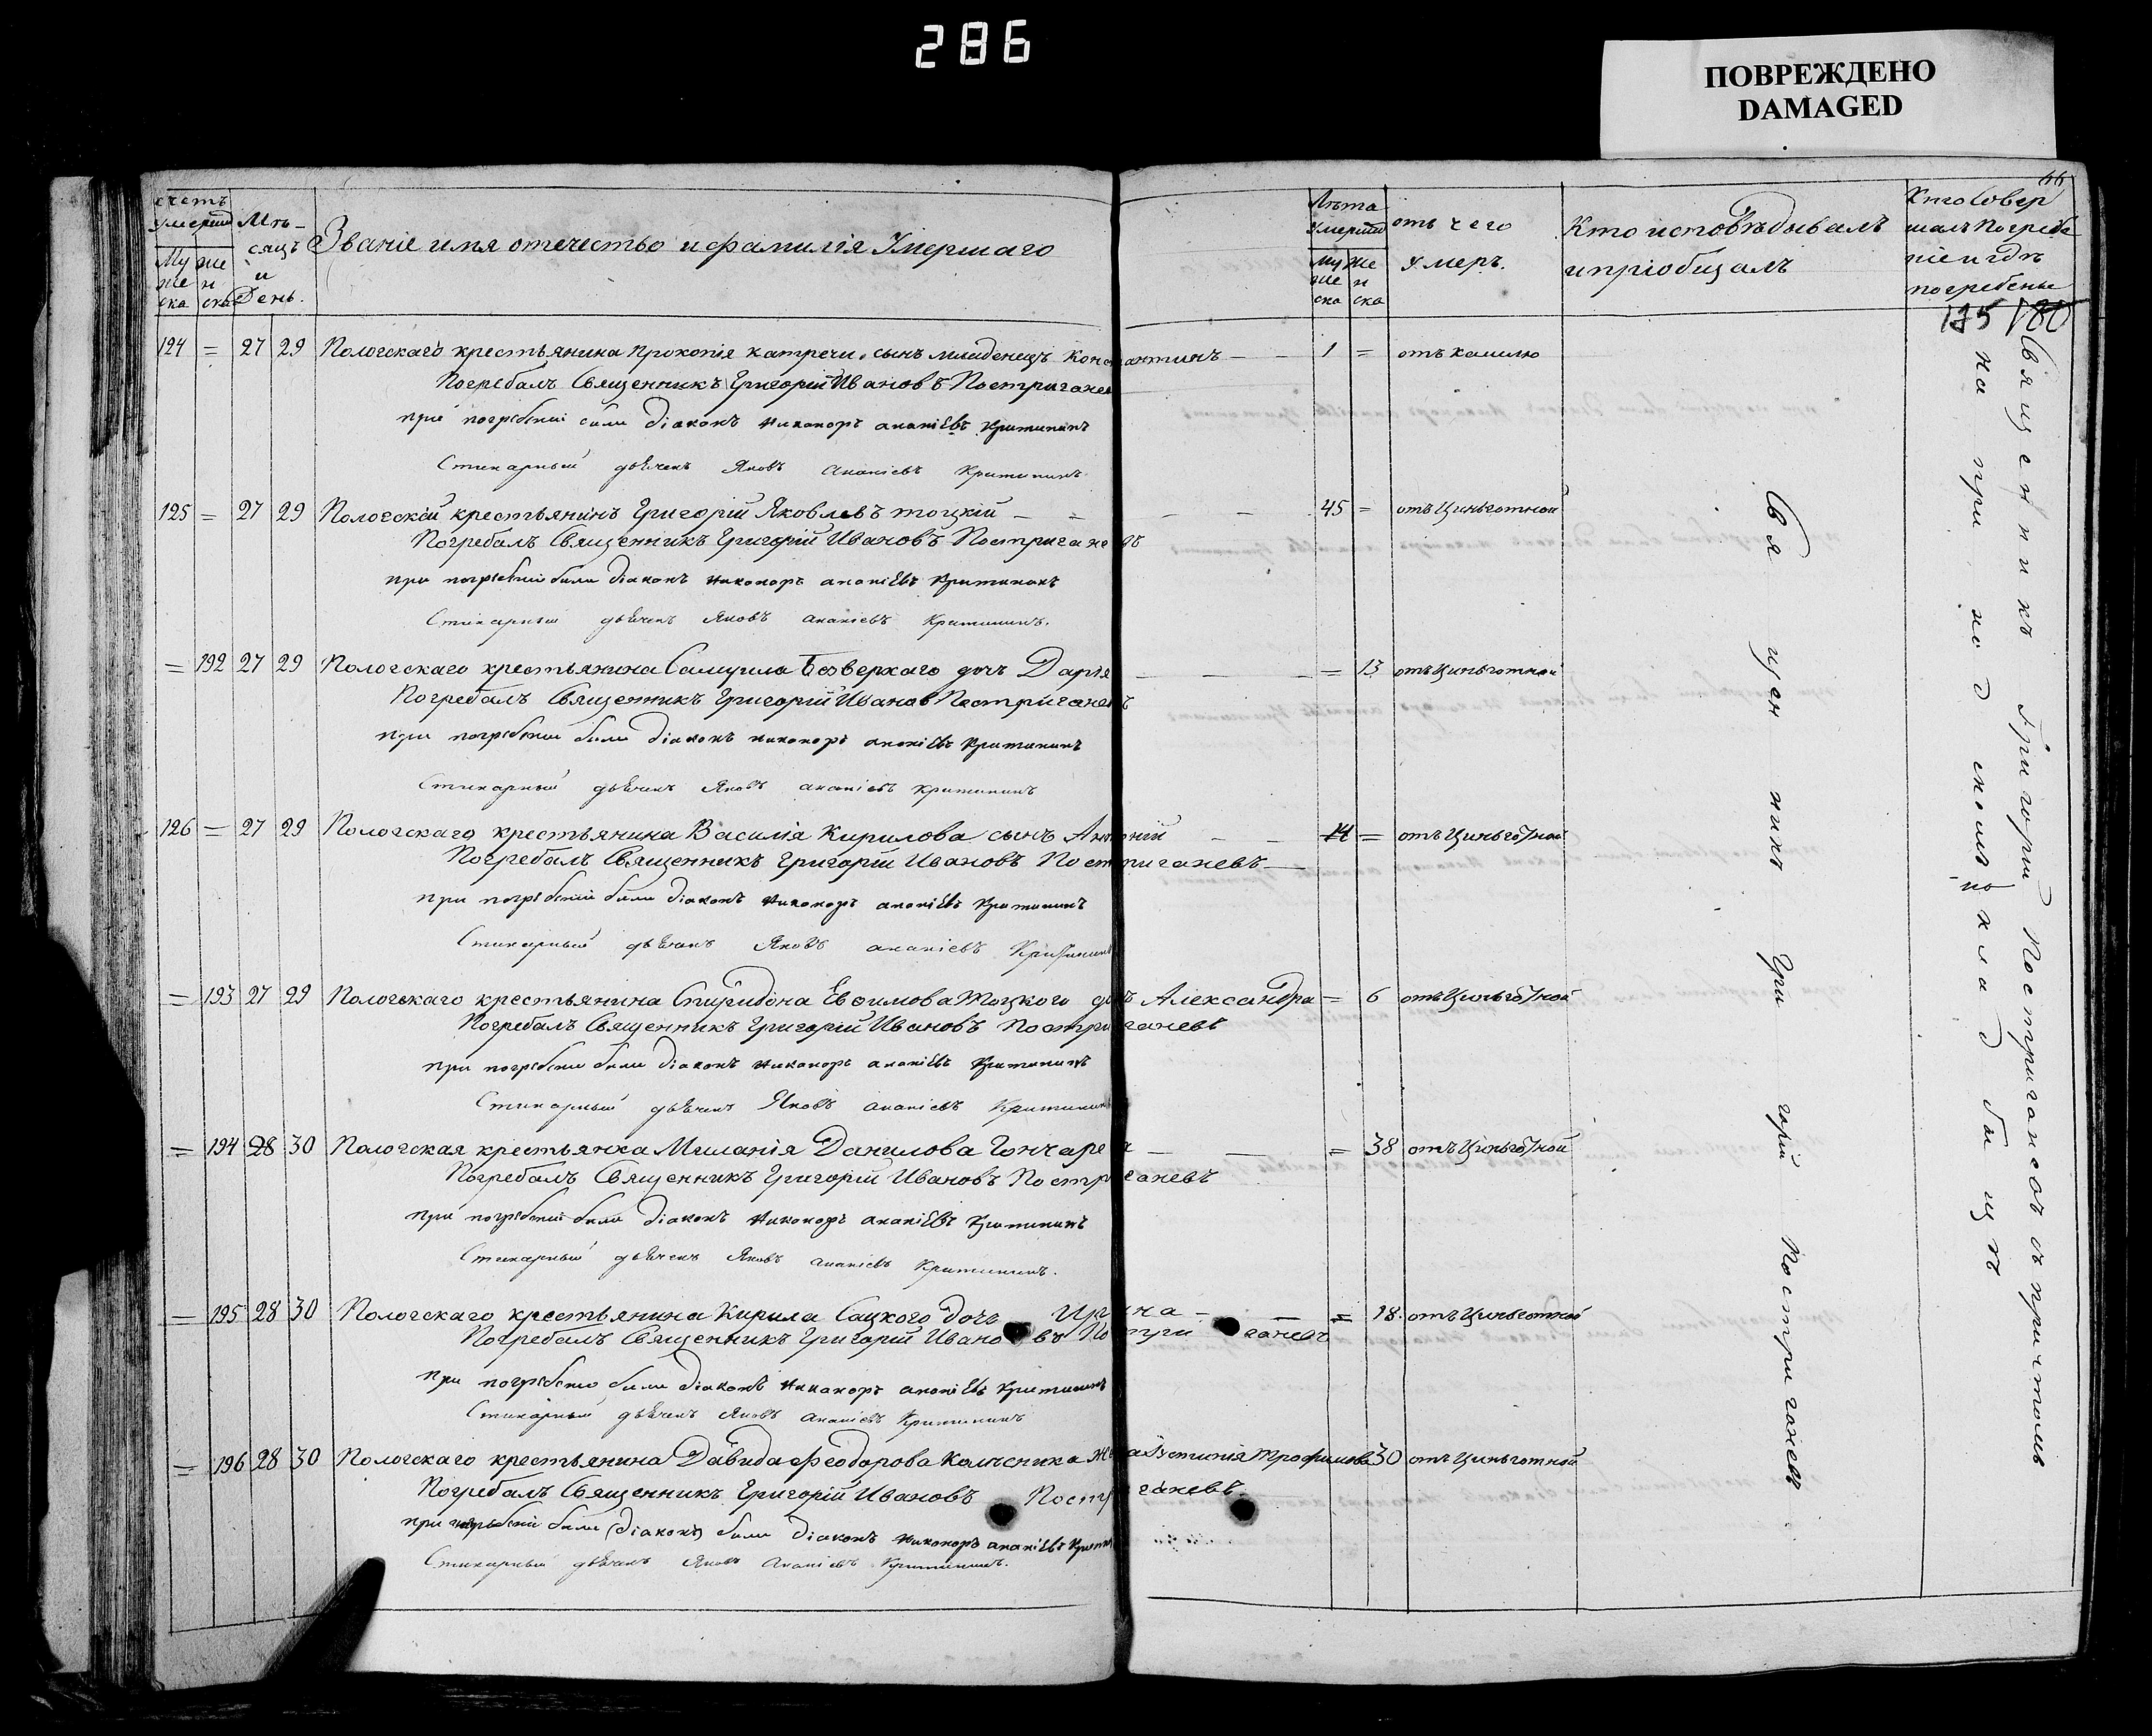 286
ПОВРЕЖДЕНО
DAMAGED
66
счетъ умерши Мѣсяцъ и День. Званіе имя отечество и фамилія Умершаго Лѣта умерши отъ чего умеръ. Кто исповѣдывалъ и пріобщалъ Кто Совершалъ Погребеніе и гдѣ погребены
Мужеска Женска Мужеска Женска
175 180
124 = 27 29 Пологскаго крестьянина Прокопія Катречи сынъ младенецъ Константинъ — — 1 = отъ кашлю
Погребалъ Священникъ Григорій Ивановъ Постригане
при погребеніи били Діаконъ Никоноръ ананіевъ Критининъ
Стихарный дьячекъ Яковъ Ананіевъ Критининъ.
125 = 27 29 Пологскій крестьянинъ Григорій Яковлевъ тоцкій — — — — 45 = отъ Циньготной
Погребалъ Священникъ Григорій Ивановъ Постриганевъ
при погребеніи били діаконъ Никоноръ ананіевъ Критининъ
Стихарный дьячекъ Яковъ ананіевъ Критининъ.
= 192 27 29 Пологскаго крестьянина Самуила Безверхаго дочь Дарія — — — = 13 отъ Циньготной
Погребалъ Священникъ Григорій Иванов Постриганевъ
при погребеніи били діаконъ Никоноръ ананіевъ Критининъ
Стихарный дьячекъ Яковъ ананіевъ Критининъ
126 = 27 29 Пологскаго крестьянина Василія Кирилова сынъ Антоній — — 14 = отъ Циньготной
Погребалъ Священникъ Григорій Ивановъ Постриганевъ —
при погребеніи били діаконъ Никоноръ ананіевъ Критининъ
Стихарный дьячекъ Яковъ ананіевъ Критининъ
= 193 27 29 Пологскаго крестьянина Спиридона Евѳимова Тоцкого дочь Александра = 6 отъ Циньготной
Погребалъ Священникъ Григорій Ивановъ Постриганевъ
при погребеніи били діаконъ Никоноръ ананіевъ Критининъ
Стихарный дьячекъ Яковъ ананіевъ Критининъ
= 194 28 30 Пологская крестьянка Миланія Данилова Гончарева — — = 38 отъ Циньготной
Погребалъ Священникъ Григорій Ивановъ Постриганевъ
при погребеніи били діаконъ Никоноръ ананіевъ Критининъ
Стихарный дьячекъ Яковъ ананіевъ Критининъ.
= 195 28 30 Пологскаго крестьянина Кирила Сацкого дочь Ирина — — = 18. отъ Циньготной
Погребалъ Священникъ Григорій Ивановъ Постриганевъ
при погребеніи били діаконъ Никоноръ ананіевъ Критининъ
Стихарный дьячекъ Яковъ ананіевъ Критининъ
= 196 28 30 Пологскаго крестьянина Давида Феодорова Колесника жена Трофимова 30 отъ Циньготной
Погребалъ Священникъ Григорій Ивановъ Постриганевъ.
при погребеніи били (діаконъ) били діаконъ Никоноръ ананіевъ
Стихарный дьячекъ Яковъ Ананіевъ Критининъ.
Священникъ Григорій Постриганевъ
Священникъ Григорій Постриганевъ съ причтомъ
на приходскомъ кладбищѣ